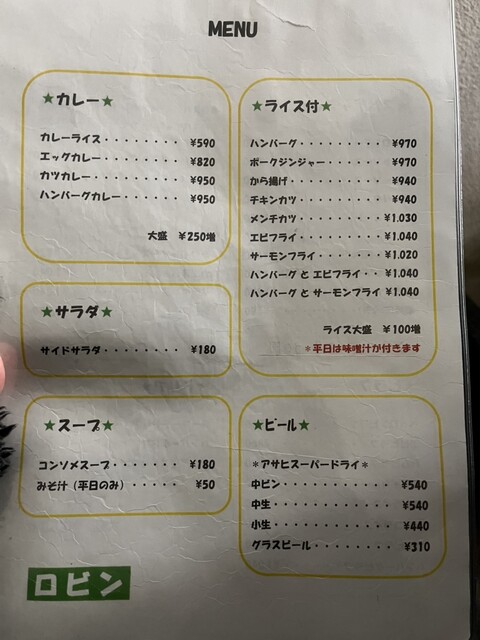 MENU
★カレー★
カレーライス・・・・・・・・ ¥590
エッグカレー・・・・・・・・ ¥820
カツカレー・・・・・・・・・ ¥950
ハンバーグカレー・・・・・・ ¥950
大盛 ¥250増
★サラダ★
サイドサラダ・・・・・・・・ ¥180
★スープ★
コンソメスープ・・・・・・・ ¥180
みそ汁（平日のみ）・・・・・ ¥50
★ライス付★
ハンバーグ・・・・・・・・・ ¥970
ポークジンジャー・・・・・・ ¥970
から揚げ・・・・・・・・・・ ¥940
チキンカツ・・・・・・・・・ ¥940
メンチカツ・・・・・・・・・ ¥1.030
エビフライ・・・・・・・・・ ¥1.040
サーモンフライ・・・・・・・ ¥1.020
ハンバーグ と エビフライ・・ ¥1.040
ハンバーグ と サーモンフライ ¥1.040
ライス大盛 ¥100増
＊平日は味噌汁が付きます
★ビール★
＊アサヒスーパードライ＊
中ビン・・・・・・・・・・・ ¥540
中生・・・・・・・・・・・・ ¥540
小生・・・・・・・・・・・・ ¥440
グラスビール・・・・・・・・ ¥310
ロビン